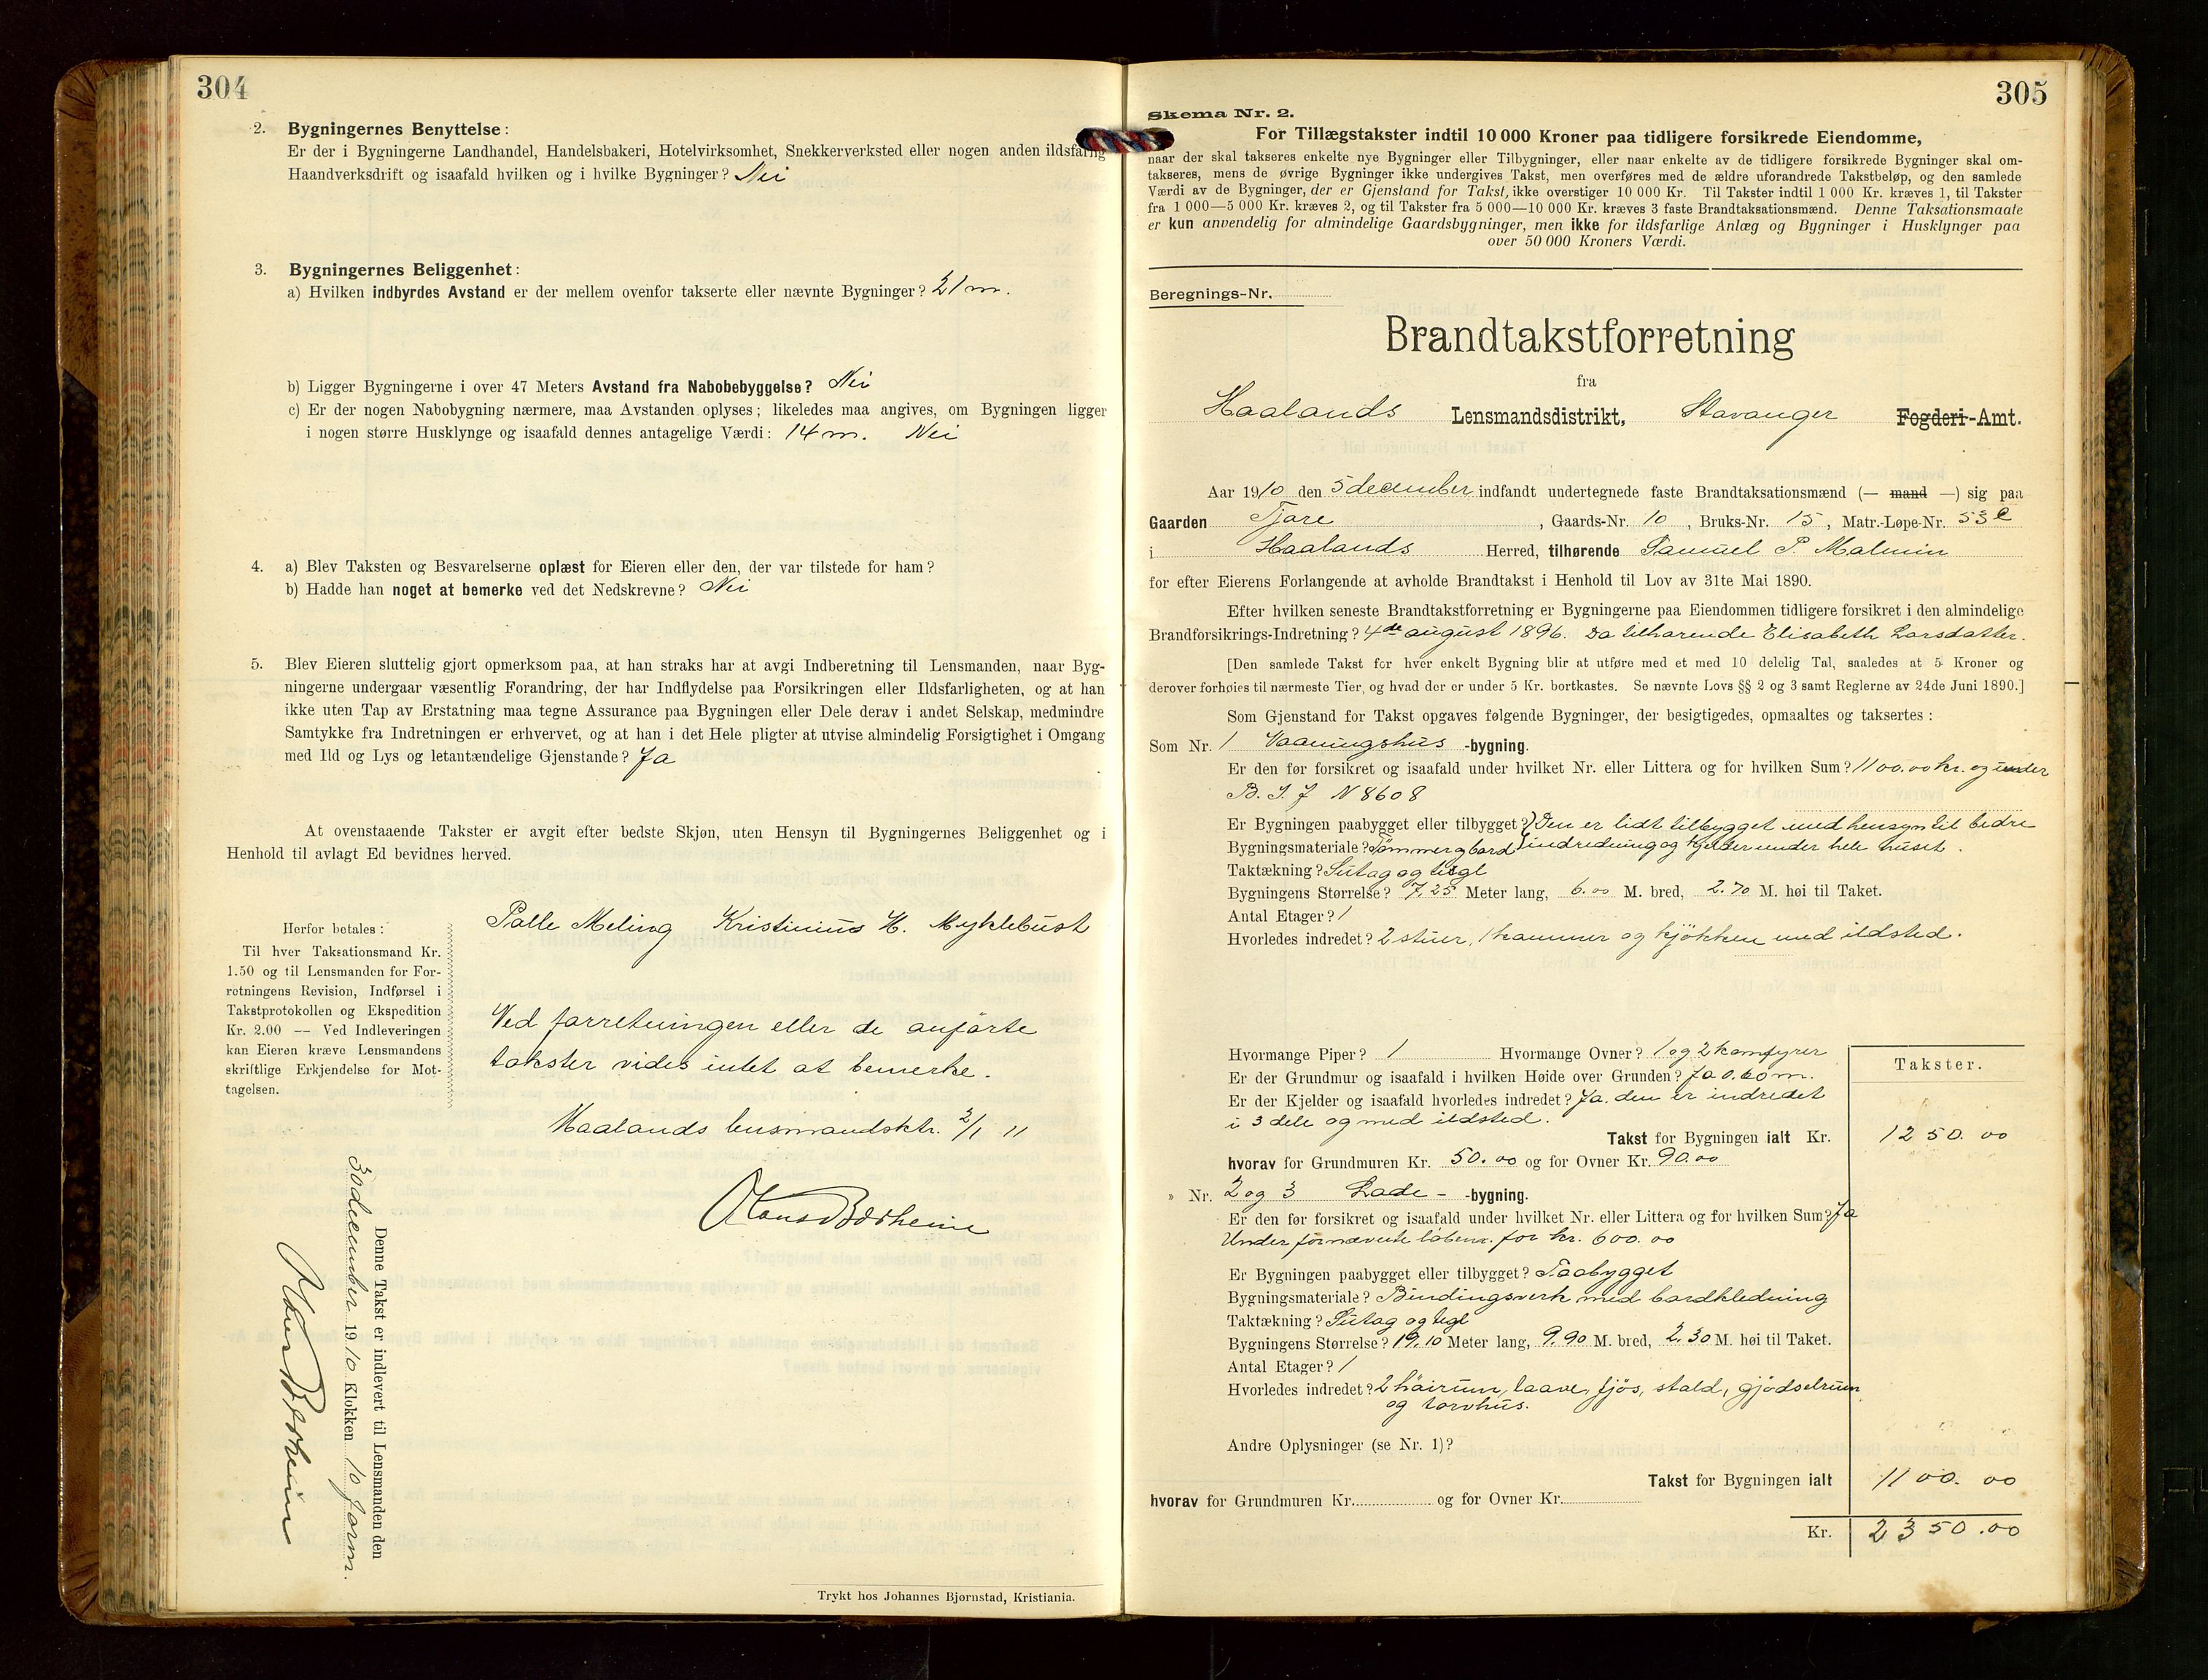 304
2. Bygningernes Benyttelse:
Er der i Bygningerne Landhandel, Handelsbakeri, Hotelvirksomhet, Snekkerverksted eller nogen anden ildsfarlig
Haandverksdrift og isaafald hvilken og i hvilke Bygninger? Nei
3. Bygningernes Beliggenhet:
a) Hvilken indbyrdes Avstand er der mellem ovenfor takserte eller nævnte Bygninger? 21 m.
b) Ligger Bygningerne i over 47 Meters Avstand fra Nabobebyggelse? Nei
c) Er der nogen Nabobygning nærmere, maa Avstanden oplyses; likeledes maa angives, om Bygningen ligger
i nogen større Husklynge og isaafald dennes antagelige Værdi: 14 m. Nei
4. a) Blev Taksten og Besvarelserne oplæst for Eieren eller den, der var tilstede for ham?
b) Hadde han noget at bemerke ved det Nedskrevne? Nei
5. Blev Eieren sluttelig gjort opmerksom paa, at han straks har at avgi Indberetning til Lensmanden, naar Byg-
ningerne undergaar væsentlig Forandring, der har Indflydelse paa Forsikringen eller Ildsfarligheten, og at han
ikke uten Tap av Erstatning maa tegne Assurance paa Bygningen eller Dele derav i andet Selskap, medmindre
Samtykke fra Indretningen er erhvervet, og at han i det Hele pligter at utvise almindelig Forsigtighet i Omgang
med Ild og Lys og letantændelige Gjenstande? Ja
At ovenstaaende Takster er avgit efter bedste Skjøn, uten Hensyn til Bygningernes Beliggenhet og i
Henhold til avlagt Ed bevidnes herved.
Palle Meling Kristinius H. Myklebust
Herfor betales:
Til hver Taksationsmand Kr.
1.50 og til Lensmanden for For-
retningens Revision, Indførsel i
Takstprotokollen og Ekspedition
Kr. 2.00 — Ved Indleveringen
kan Eieren kræve Lensmandens
skriftlige Erkjendelse for Mot-
tagelsen.
Ved forretningen eller de anførte
takster vides intet at bemerke.
Haalands lensmandsktr. 2/1 11
Denne Takst er indlevert til Lensmanden den
30 december 1910 Klokken 10 form.
Trykt hos Johannes Bjørnstad, Kristiania.
305
Skema Nr. 2.
For Tillægstakster indtil 10 000 Kroner paa tidligere forsikrede Eiendomme,
naar der skal takseres enkelte nye Bygninger eller Tilbygninger, eller naar enkelte av de tidligere forsikrede Bygninger skal om-
takseres, mens de øvrige Bygninger ikke undergives Takst, men overføres med de ældre uforandrede Takstbeløp, og den samlede
Værdi av de Bygninger, der er Gjenstand for Takst, ikke overstiger 10 000 Kr. Til Takster indtil 1 000 Kr. kræves 1, til Takster
fra 1 000—5 000 Kr. kræves 2, og til Takster fra 5 000—10 000 Kr. kræves 3 faste Brandtaksationsmænd. Denne Taksationsmaate
er kun anvendelig for almindelige Gaardsbygninger, men ikke for ildsfarlige Anlæg og Bygninger i Husklynger paa
over 50 000 Kroners Værdi.
Beregnings-Nr.
Brandtakstforretning
fra
Haalands Lensmandsdistrikt, Stavanger Fogderi-Amt.
Aar 1910 den 5 december indfandt undertegnede faste Brandtaksationsmænd (— mand —) sig paa
Gaarden Tjore, Gaards-Nr. 10, Bruks-Nr. 15, Matr.-Løpe-Nr. 53 c
i Haalands Herred, tilhørende Samuel P. Malmin
for efter Eierens Forlangende at avholde Brandtakst i Henhold til Lov av 31te Mai 1890.
Efter hvilken seneste Brandtakstforretning er Bygningerne paa Eiendommen tidligere forsikret i den almindelige
Brandforsikrings-Indretning? 4de august 1896. Da tilhørende Elisabeth Larsdatter.
[Den samlede Takst for hver enkelt Bygning blir at utføre med et med 10 delelig Tal, saaledes at 5 Kroner og
derover forhøies til nærmeste Tier, og hvad der er under 5 Kr. bortkastes. Se nævnte Lovs §§ 2 og 3 samt Reglerne av 24de Juni 1890.]
Som Gjenstand for Takst opgaves følgende Bygninger, der besigtigedes, opmaaltes og taksertes:
Som Nr. 1 Vaaningshus -bygning.
Er den før forsikret og isaafald under hvilket Nr. eller Littera og for hvilken Sum? 1100.00 kr. og under
B. I. J N 8608
Er Bygningen paabygget eller tilbygget? Den er lidt tilbygget med hensyn til bedre
Bygningsmateriale? Tømmer og bord indredning og kjelder under hele huset.
Taktækning? Sutag og tegl
Bygningens Størrelse? 7,25 Meter lang, 6.00 M. bred, 2.70 M. høi til Taket.
Antal Etager? 1
Hvorledes indredet? 2 stuer, 1 kammer og kjökken med ildsted.
Hvormange Piper? 1 Hvormange Ovner? 1 og 2 komfyrer
Er der Grundmur og isaafald i hvilken Høide over Grunden? Ja 0.60 m.
Er der Kjelder og isaafald hvorledes indredet? Ja. den er indredet
i 3 dele og med ildsted.
Takster.
Takst for Bygningen ialt Kr. 1250.00
hvorav for Grundmuren Kr. 50.00 og for Ovner Kr. 90.00
» Nr. 2 og 3 Lade - -bygning.
Er den før forsikret og isaafald under hvilket Nr. eller Littera og for hvilken Sum? Ja
Under fornævnte löbenr. for kr. 600.00
Er Bygningen paabygget eller tilbygget? Paabygget
Bygningsmateriale? Bindingsverk med bordklædning
Taktækning? Sutag og tegl
Bygningens Størrelse? 19,10 Meter lang, 9.90 M. bred, 2.30 M. høi til Taket.
Antal Etager? 1
Hvorledes indredet? 2 höirum, laave, fjös, stald, gjødselrum
og torvhus.
Andre Oplysninger (se Nr. 1)?
Takst for Bygningen ialt 1100.00
hvorav for Grundmuren Kr. og for Ovner Kr.
Kr. 2350.00